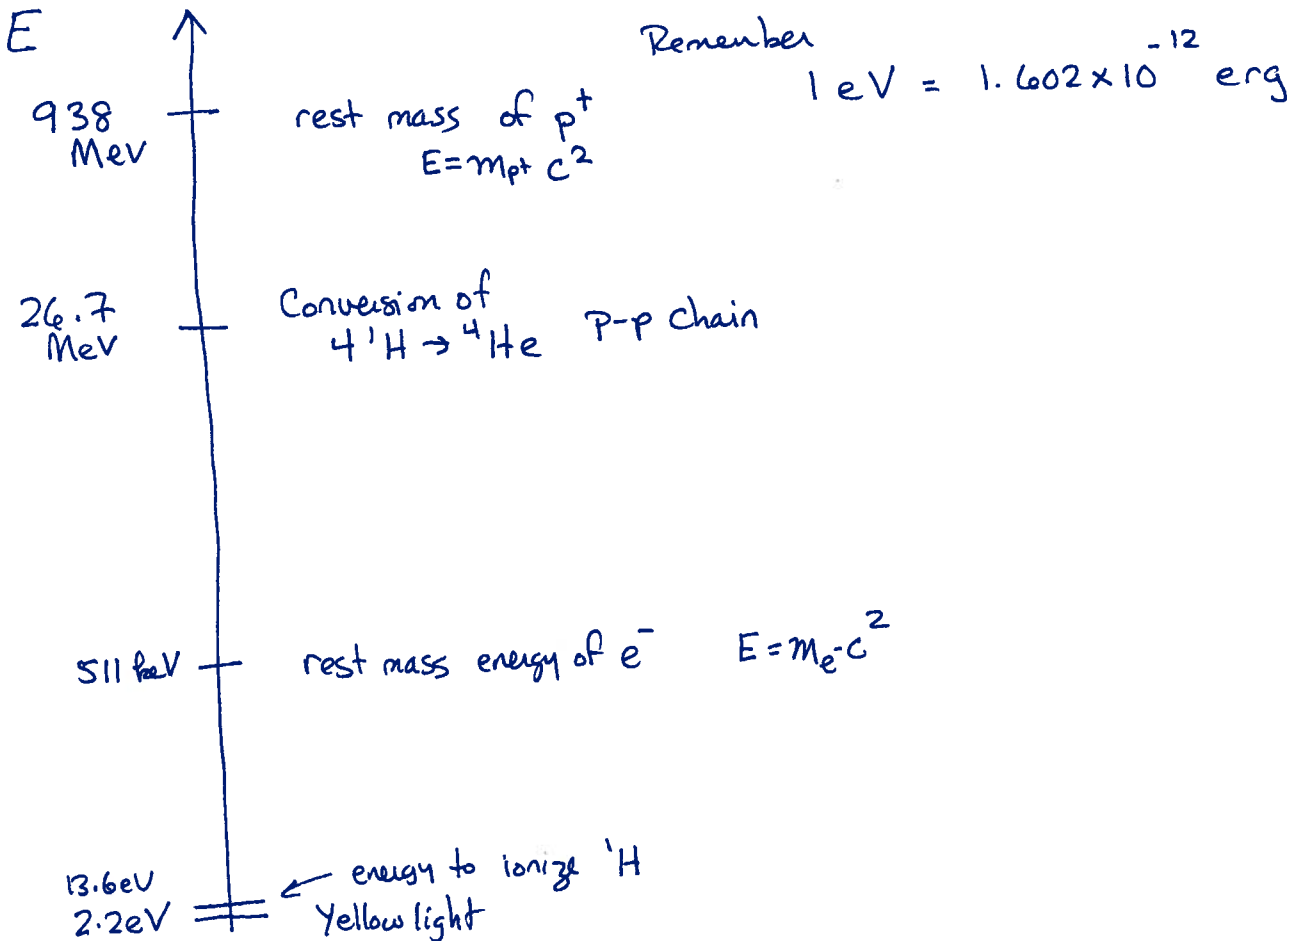 E
Remember
1 eV = 1.602 x 10⁻¹² erg
938 MeV
rest mass of p⁺
E = mₚ₊ c²
26.7 MeV
Conversion of
4 ¹H → ⁴He p-p chain
511 keV
rest mass energy of e⁻ E = mₑ- c²
13.6eV
energy to ionize ¹H
2.2eV
Yellow light